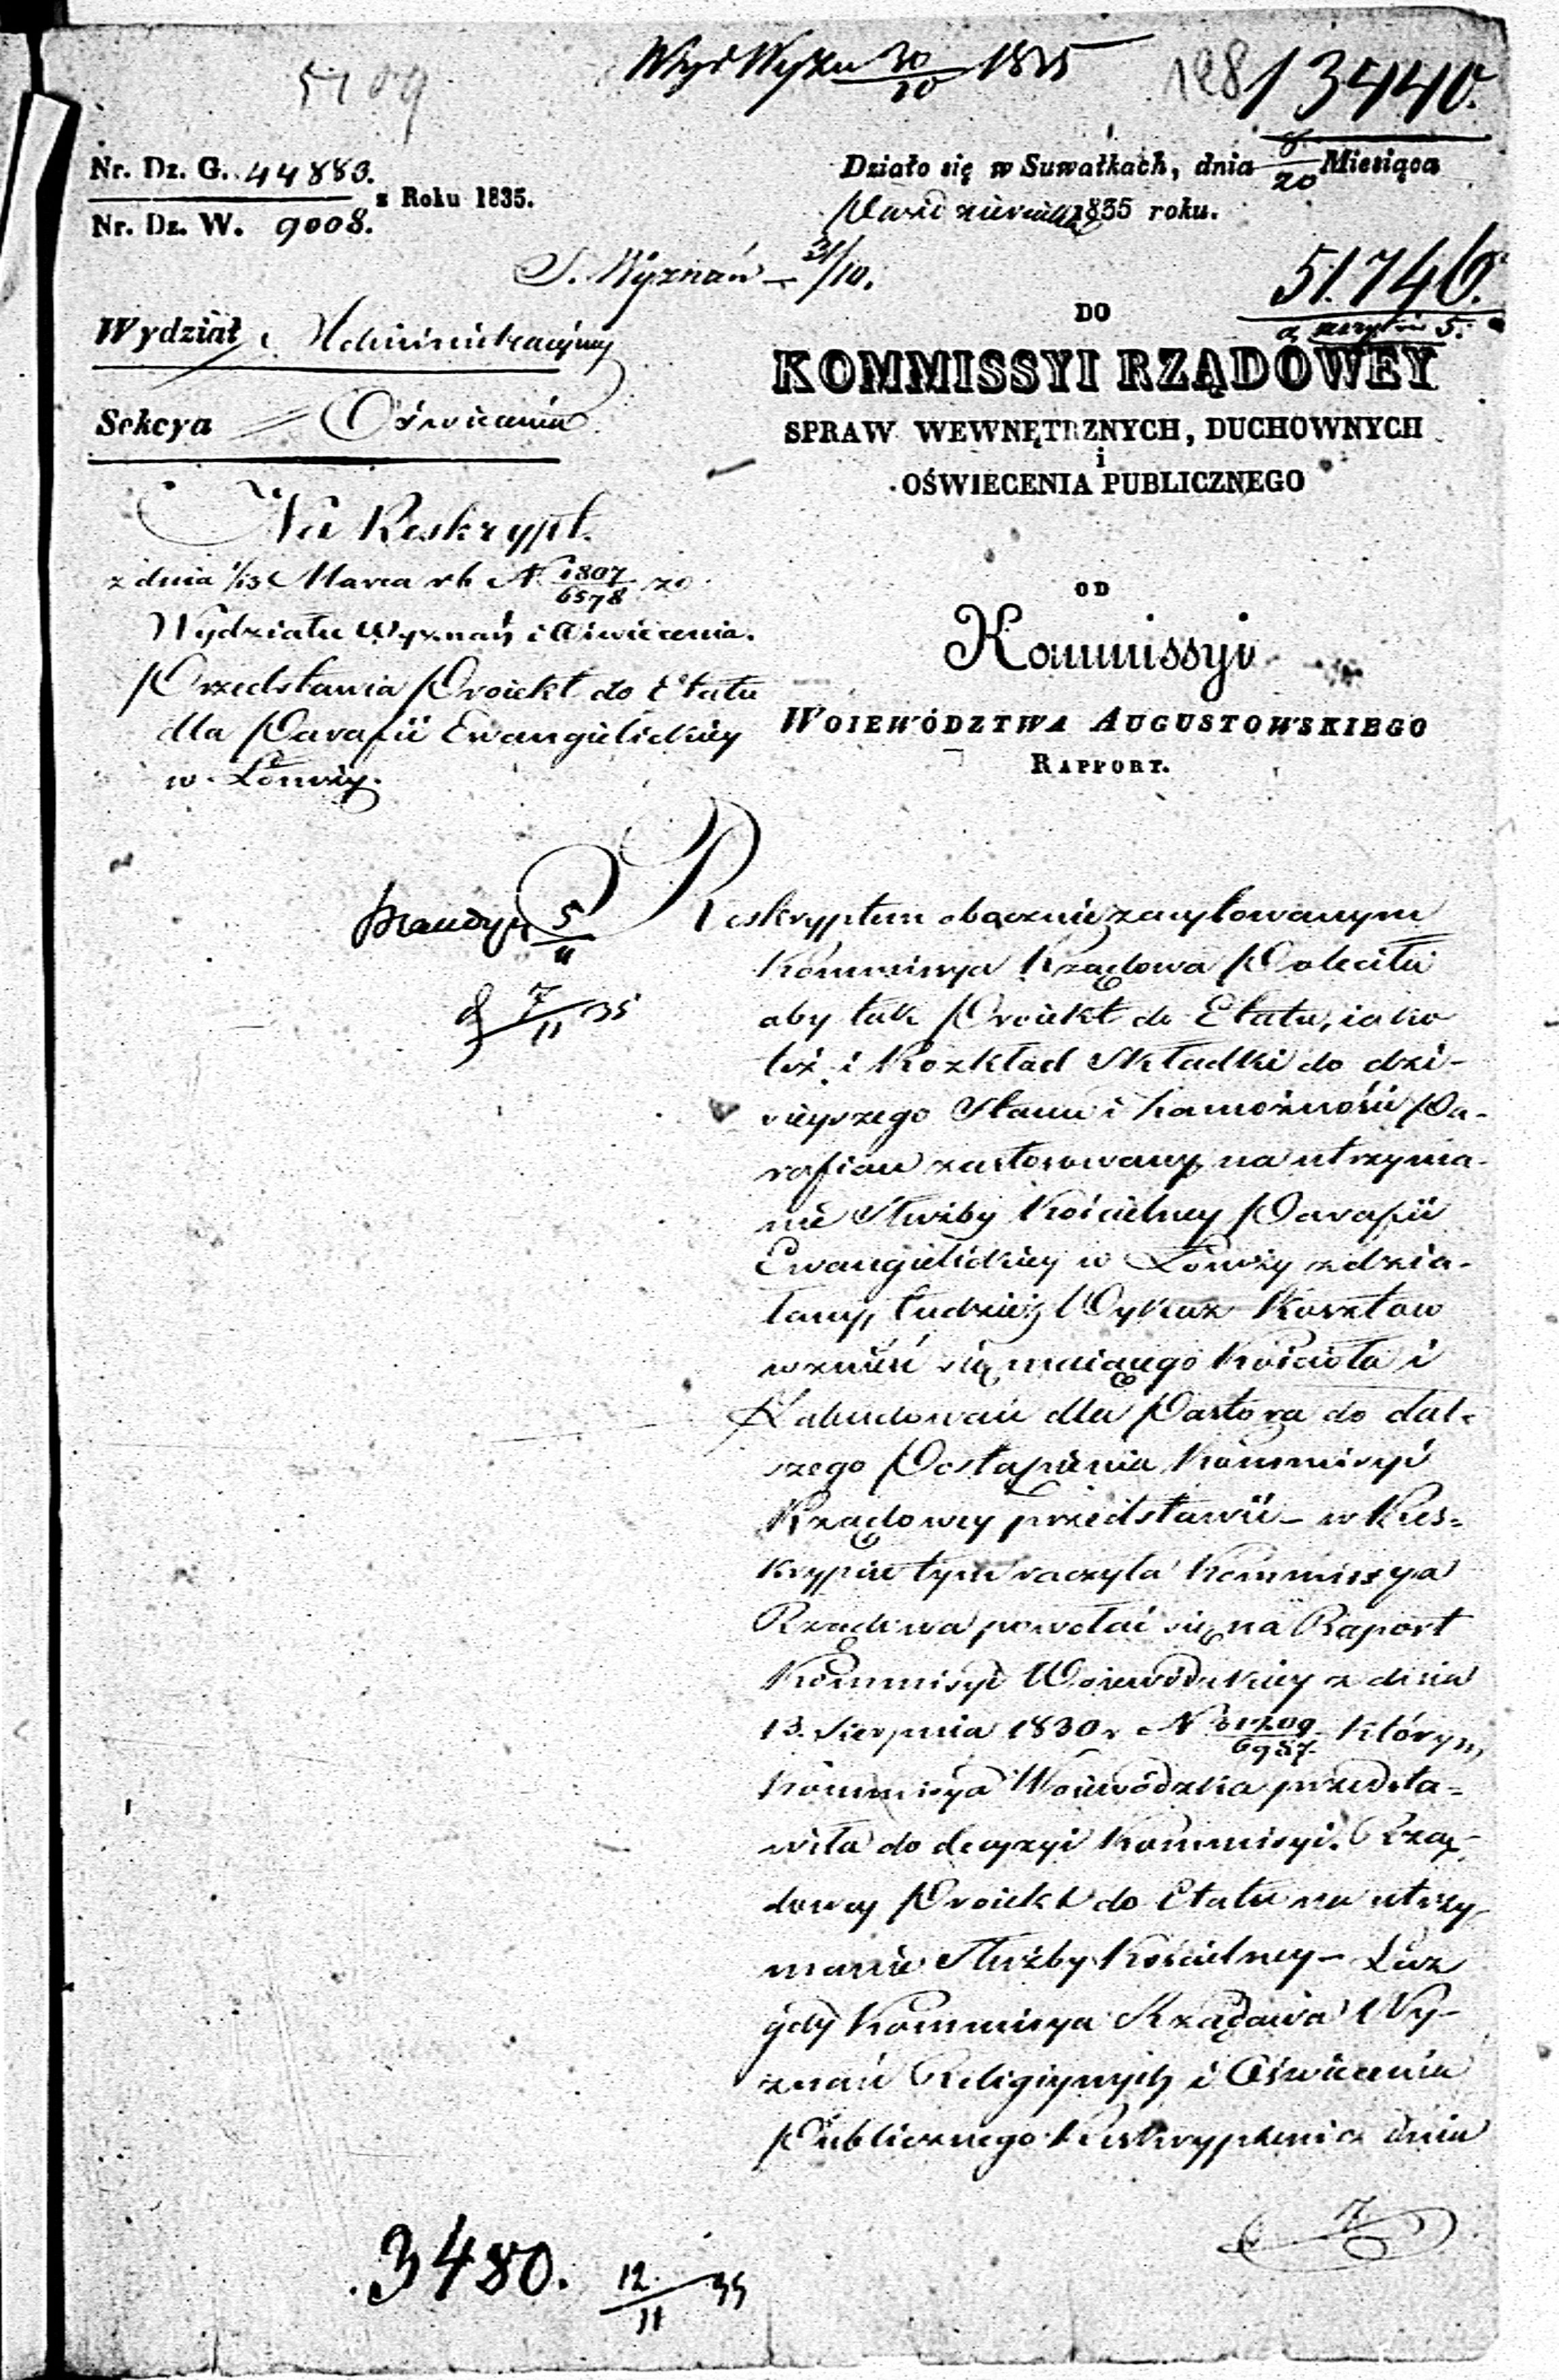 5709
Wyd Wyzn 30/10 1835
128
13440.
Nr. Dz. G. 44883.
z Roku 1835.
Nr. Dz. W. 9008.
Działo się w Suwałkach, dnia 8/20 Miesiąca
Października 1835 roku.
S. Wyznań 31/10.
51.746.
Wydział Administracyiny
Sekcya Oświecenia
DO
KOMMISSYI RZĄDOWEY
SPRAW WEWNĘTRZNYCH, DUCHOWNYCH
i
OŚWIECENIA PUBLICZNEGO
Na Reskrypt
z dnia 1/13 Marca rb N 1807/6578 zo
Wydziału Wyznań i Oświecenia.
Przedstawia Proiekt do Etatu
dla Parafii Ewangielickiey
w Łomży.
OD
Kommissyi
WOIEWÓDZTWA AUGUSTOWSKIEGO
RAPPORT.
5/11
7/11 35
Reskryptem obocznie zacytowanym
Kommissya Rządowa Poleciła
aby tak Proiekt do Etatu, iako
też i Rozkład Składki do dzi-
sieyszego Stanu i Zamożności Pa-
rafian zastosowany, na utrzyma-
nie Służby Kościelney Parafii
Ewangielickiey w Łomży zdzia-
łany, tudzież Wykaz Kosztow
wznieść się maiącego Kościoła i
Zabudowań dla Pastora do dal-
szego Postąpienia Kommissyi
Rządowey przedstawić - w Res-
krypcie tym raczyła Kommissya
Rządowa powołać się na Raport
Kommissyi Woiewódzkiey z dnia
13. Sierpnia 1830 r N 31209/6987 którym
Kommissya Woiewódzka przedsta-
wiła do decyzyi Kommissyi Rzą-
dowey Proiekt do Etatu na utrzy-
manie Służby Kościelney - Lecz
gdy Kommissya Rządowa Wy-
znań Religiynych i Oświecenia
Publicznego Reskryptem z dnia
7
3480.
12/11 35